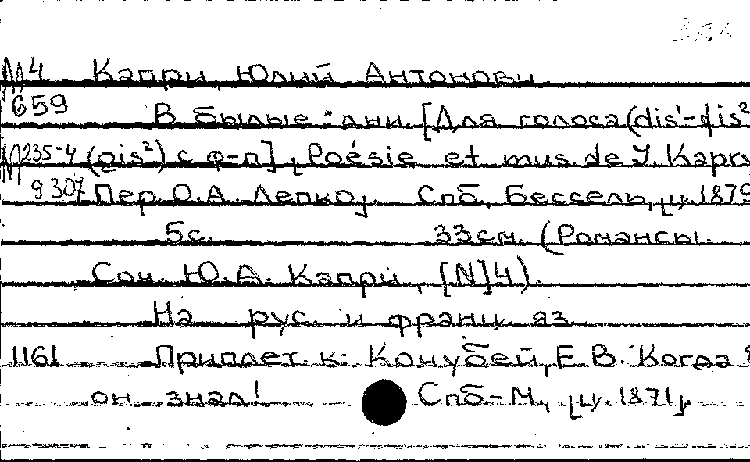 М4 Капри, Юлий Антонович
659 В былые дни. [Для голоса (dis¹-fis²
М235-4 (gis²) с ф-п], Poésie et mus de J. Капри
9307 Пер. О.А. Лепко, Спб, Бессель, ц. 1879
5с. 33см. (Романсы.
Соч. Ю.А. Капри, [N]4).
На рус. и франц. яз
1161 Приплет. к: Кочубей, Е.В. Когда б
он знал! Спб-М, ц. 1871,